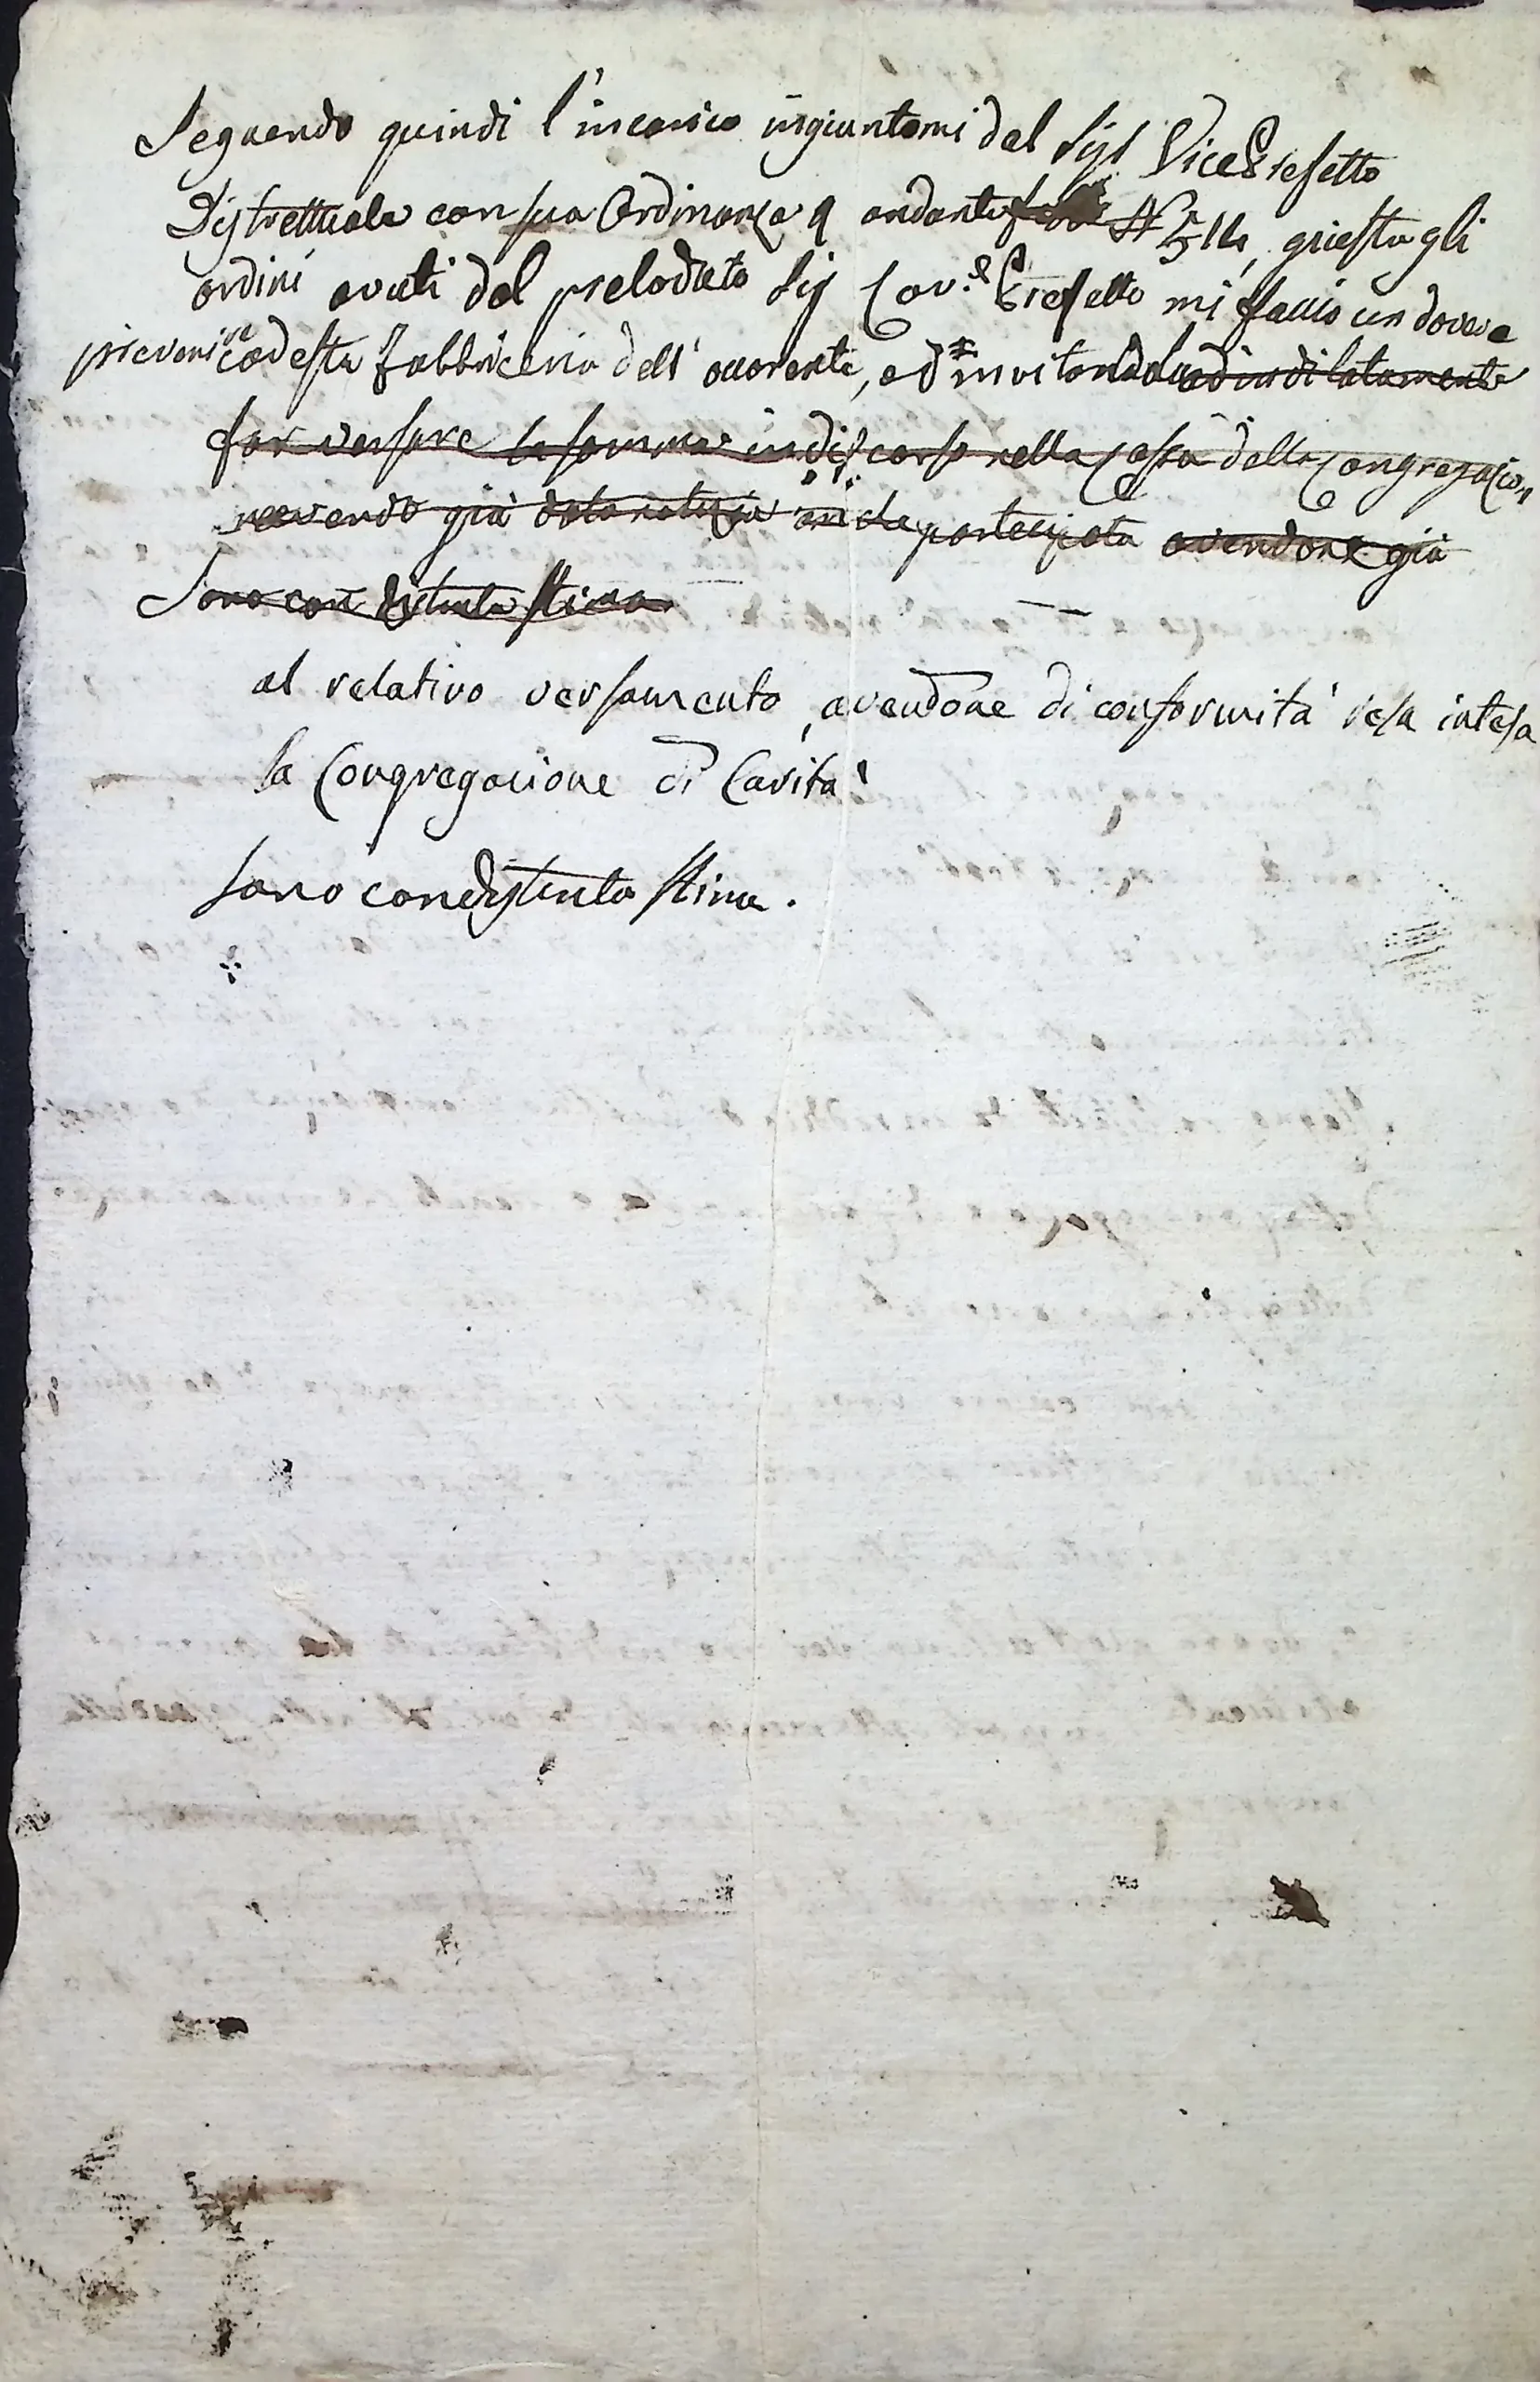 Seguendo quindi l'incarico ingiuntomi dal Sigr Vice Prefetto
Distrettuale con sua Ordinanza 9 andante N 514, giusta gli
ordini avuti dal prelodato Sig Cav.e Prefetto mi faccio un dovere
prevenire codesta Fabbriceria dell' occorente, ed invitandola ad indilatamente
far versare la somma in discorso nella Cassa della Congregazion
avendo già data notizia partecipata avendone già
Sono con distinta stima
al relativo versamento, avendone di conformità resa intesa
la Congregacione di Carità
Sono con distinta stima.